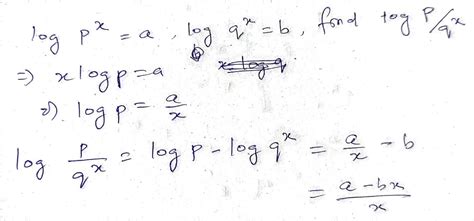 log p^x = a , log q^x = b , find log P/q^x
=> x log p = a
2). log p = a/x
log p/q^x = log p - log q^x = a/x - b
= a - bx/x